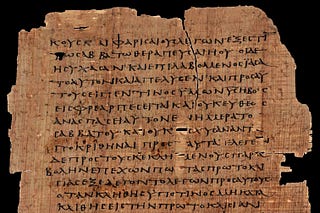 ΚΟΥΣ ΚΑΙ ΦΑΡΙΣΑΙΟΥΣ ΛΕΓΩΝ ΕΞΕΣΤΙ
ΤΩ ΣΑΒΒΑΤΩ ΘΕΡΑΠΕΥΣΑΙ Η ΟΥ ΟΙ ΔΕ
ΗΣΥΧΑΣΑΝ ΚΑΙ ΕΠΙΛΑΒΟΜΕΝΟΣ ΙΑΣΑ
ΤΟ ΑΥΤΟΝ ΚΑΙ ΑΠΕΛΥΣΕΝ ΚΑΙ ΠΡΟΣ ΑΥ
ΤΟΥΣ ΕΙΠΕΝ ΤΙΝΟΣ ΥΜΩΝ ΥΙΟΣ Η ΒΟΥΣ
ΕΙΣ ΦΡΕΑΡ ΠΕΣΕΙΤΑΙ ΚΑΙ ΟΥΚ ΕΥΘΕΩΣ
ΑΝΑΣΠΑΣΕΙ ΑΥΤΟΝ ΗΜΕΡΑ ΤΟΥ
ΣΑΒΒΑΤΟΥ ΚΑΙ ΟΥΚ ΑΝΤ
ΑΠΟΚΡΙΘΗΝΑΙ ΠΡΟΣ ΤΑΥΤΑ ΕΛΕΓΕΝ
ΔΕ ΠΡΟΣ ΤΟΥΣ ΚΕΚΛΗΜΕΝΟΥΣ ΠΑΡΑ
ΒΟΛΗΝ ΕΠΕΧΩΝ ΠΩΣ ΤΑΣ ΠΡΩΤΟΚΛΙ
ΣΙΑΣ ΕΞΕΛΕΓΟΝΤΟ ΛΕΓΩΝ ΠΡΟΣ ΑΥΤΟΥΣ
ΟΤΑΝ ΚΛΗΘΗΣ ΥΠΟ ΤΙΝΟΣ ΜΗ ΚΑΤΑ
ΚΛΙΘΗΣ ΕΙΣ ΤΗΝ ΠΡΩΤΟΚΛΙΣΙΑΝ